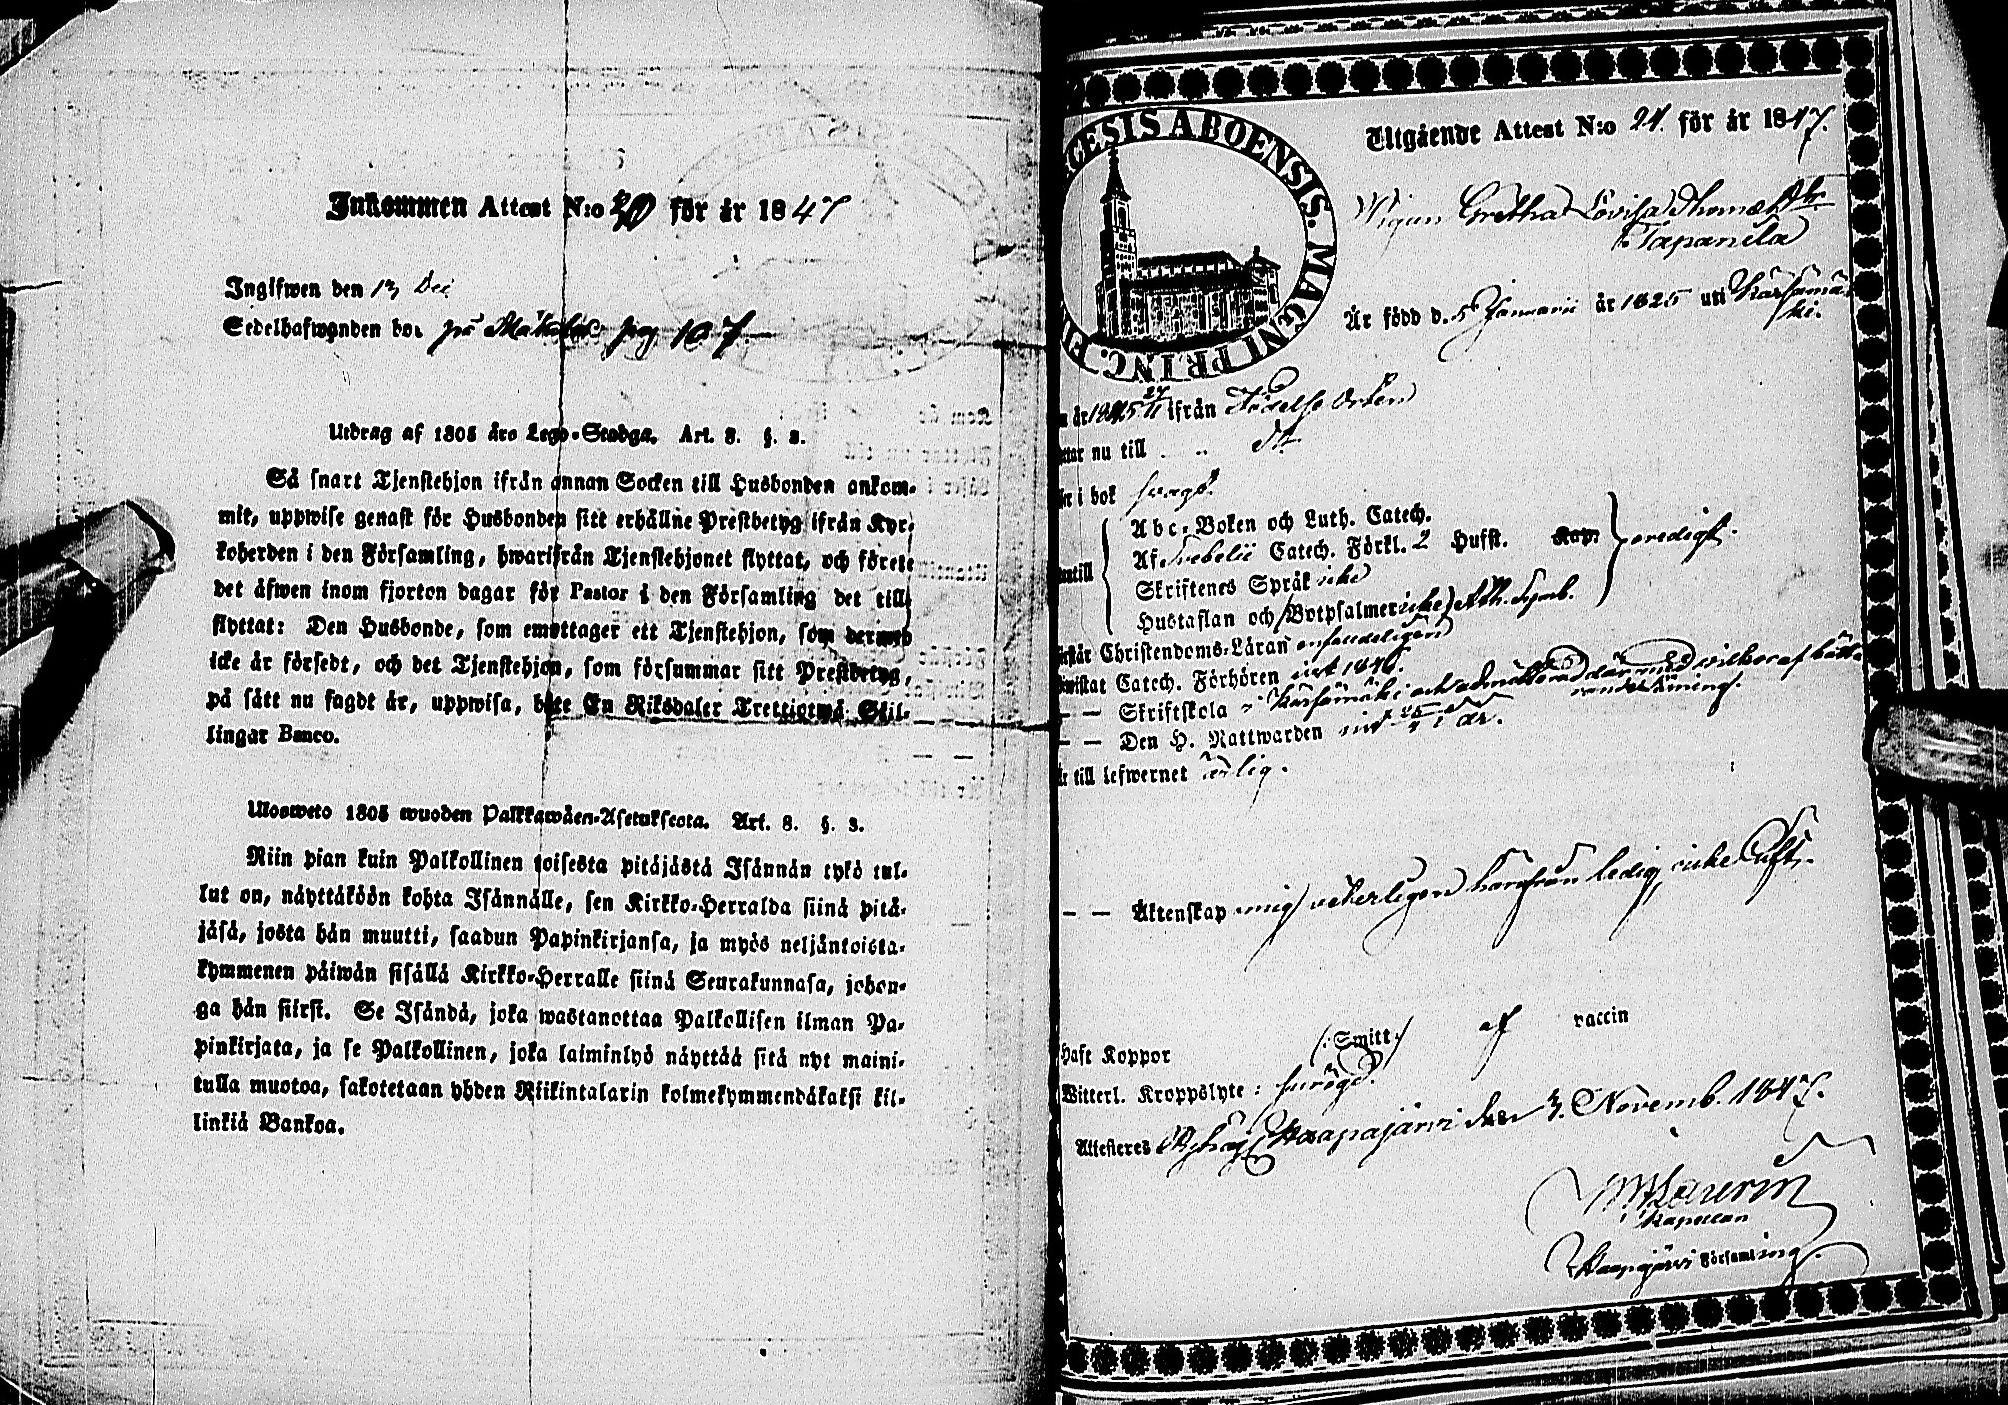 Inkommen Attest N:o 30 för år 1847
Ingifwen den 13 Dec
Sedelhafwanden bor på Mäkelä pag 107.
Utdrag af 1805 års Lego-Stadga. Art. 8. §. 3.
Så snart Tjenstehjon ifrån annan Socken till Husbonden ankom-
mit, uppwise genast för Husbonden sitt erhållne Prestbetyg ifrån Kyr-
koherden i den Församling, hwarifrån Tjenstehjonet flyttat, och förete
det äfwen inom fjorton dagar för Pastor i den Församling det till-
flyttat: Den Husbonde, som emottager ett Tjenstehjon, som dermed
icke är försedt, och det Tjenstehjon, som försummar sitt Prestbetyg,
på sätt nu sagdt är, uppwisa, böte En Riksdaler Trettiotwå Skil-
lingar Banco.
Ulosweto 1805 wuoden Palkkawäen-Asetuksesta. Art. 8. §. 3.
Niin pian kuin Palkollinen toisesta pitäjästä Isännän tykö tul-
lut on, näyttäköön kohta Isännälle, sen Kirkko-Herralda siinä pitä-
jäsä, josta hän muutti, saadun Papinkirjansa, ja myös neljäntoista-
kymmenen päiwän sisällä Kirkko-Herralle siinä Seurakunnasa, johon-
ga hän siirst. Se Isändä, joka wastanottaa Palkollisen ilman Pa-
pinkirjata, ja se Palkollinen, joka laiminlyö näyttää sitä nyt maini-
tulla muotoa, sakotetaan yhden Riikintalarin kolmekymmendäkaksi kil-
linkiä Bankoa.
ECESIS ABOENSIS. MAGNI PRINC. FI
Utgående Attest N:o 24. för år 1847.
Pigan Gretha Lovisa Thomæ dr.
Tapanila
Är född d. 5 Januarii år 1825 uti Kärsämä-
ki.
år 1845 27/11 ifrån Födelse Orten
nu till dt
i bok svagt.
Abc-Boken och Luth. Catech.
Af Svebelii Catech. Förkl. 2 Hufst. Kap.
Skriftenes Språk icke
Hustaflan och Botpsalmer icke Ath. Symb.
oredigt.
Christendoms-Läran enfaldeligen
Catech. Förhören sist 1846.
— — Skriftskola i Kärsämäki
— — Den H. Nattwarden sist 25/4 i år.
till lefwernet ärlig.
— — Äktenskap mig veterligen härifrån ledig, icke
Haft Koppor (: Smitt :) af vaccin
Witterl. Kroppslyte:
Attesteres Haapajärvi den 3. Novemb. 1847.
Laurin
Kapellan
Haapajärvi Församling.